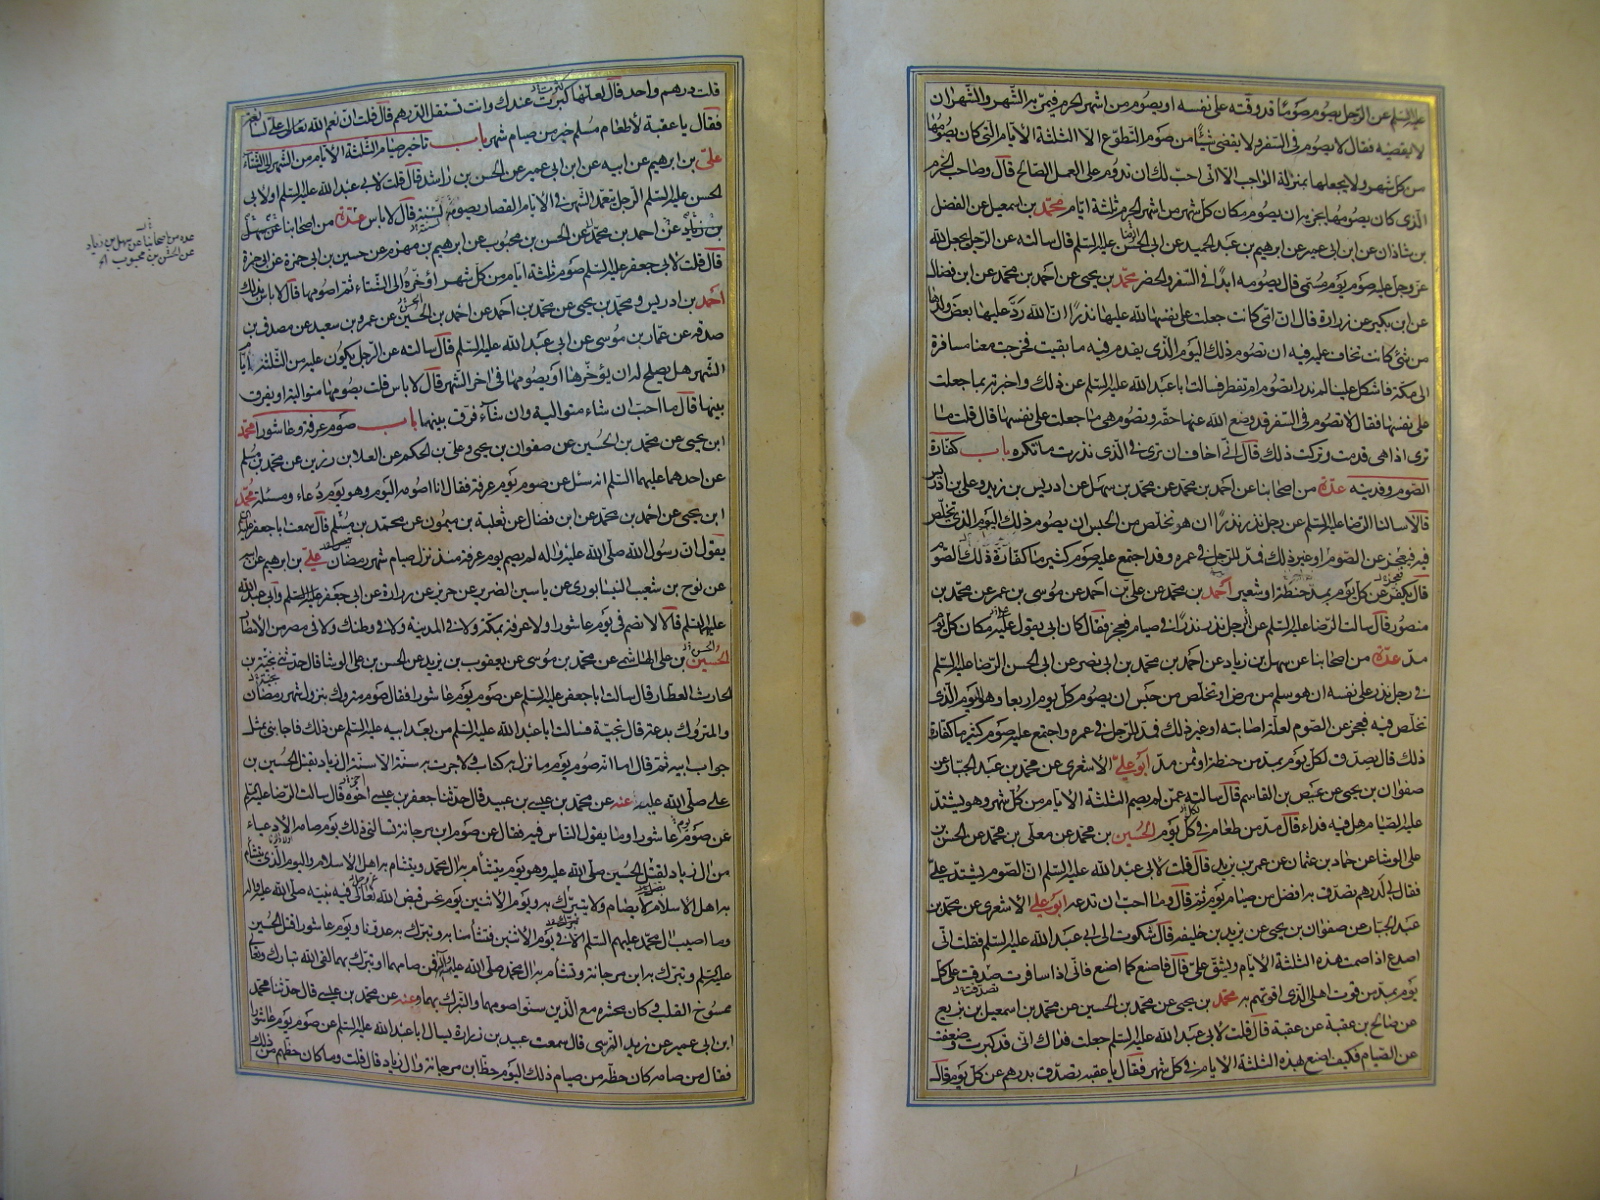 عليه السلم عن الرجل يصوم صوما قد وقته على نفسه او يصوم من اشهر الحرم فيمر به الشهر والشهران
لا يقضيه فقال لا يصوم في السفر ولا يقضي شيئا من صوم التطوع الا الثلثة الايام التي كان يصومها
من كل شهر ولا يجعلها بمنزلة الواجب الا اني احب لك ان تدوم على العمل الصالح قال وصاحب الحرم
الذى كان يصومها يجزيه ان يصوم مكان كل شهر من اشهر الحرم ثلثة ايام محمد بن اسمعيل عن الفضل
بن شاذان عن ابن ابى عمير عن ابرهيم بن عبد الحميد عن ابى الحسن عليه السلم قال سالته عن الرجل يجعل لله
عز وجل عليه صوم يوم مسمى قال يصومه ابدا في السفر والحضر محمد بن يحيى عن احمد بن محمد عن ابن فضال
عن ابن بكير عن زرارة قال ان امى كانت جعلت على نفسها لله عليها نذرا ان الله رد عليها بعض ولدها
من شئ كانت تخاف عليه فيه ان تصوم ذلك اليوم الذى يقدم فيه ما بقيت فخرجت معنا مسافرة
الى مكة فاشكل علينا لم ندر اتصوم ام تفطر فسالت ابا عبد الله عليه السلم عن ذلك واخبرته بما جعلت
على نفسها فقال لا تصوم في السفر قد وضع الله عنها حقه وتصوم هى ما جعلت على نفسها قال قلت ما
ترى اذا هى قدمت وتركت ذلك قال انى اخاف ان ترى في الذى نذرت ما تكره باب كفارة
الصوم وفديته عدة من اصحابنا عن احمد بن محمد عن محمد بن سهل عن ادريس بن زيد وعلى بن ادريس
قالا سالنا الرضا عليه السلم عن رجل نذر نذرا ان هو تخلص من الحبس ان يصوم ذلك اليوم الذى تخلص
فيه فيعجز عن الصوم او غير ذلك فمد للرجل في عمره وقد اجتمع عليه صوم كثير ما كفارة ذلك الصوم
قال يكفر عن كل يوم بمد حنطة او شعير احمد بن محمد عن على بن احمد عن موسى بن عمر عن محمد بن
منصور قال سالت الرضا عليه السلم عن رجل نذر نذرا في صيام فعجز فقال كان ابى يقول عليه مكان كل يوم
مد عدة من اصحابنا عن سهل بن زياد عن احمد بن محمد بن ابى نصر عن ابى الحسن الرضا عليه السلم
في رجل نذر على نفسه ان هو سلم من مرض او تخلص من حبس ان يصوم كل يوم اربعا وهو اليوم الذى
تخلص فيه فعجز عن الصوم لعلة اصابته او غير ذلك فمد للرجل في عمره واجتمع عليه صوم كثير ما كفارة
ذلك قال يصدق لكل يوم بمد من حنطة او ثمن مد ابو على الاشعرى عن محمد بن عبد الجبار عن
صفوان بن يحيى عن عيص بن القاسم قال سالته عمن لم يصم الثلثة الايام من كل شهر وهو يشتد
عليه الصيام هل فيه فداء قال مد من طعام في كل يوم الحسين بن محمد عن معلى بن محمد عن الحسن بن
على الوشا عن حماد بن عثمان عن عمر بن يزيد قال قلت لابى عبد الله عليه السلم ان الصوم يشتد على
فقال لى لدرهم تصدق به افضل من صيام يوم ثم قال وما احب ان تدعه ابو على الاشعرى عن محمد بن
عبد الجبار عن صفوان بن يحيى عن يزيد بن خليفه قال شكوت الى ابى عبد الله عليه السلم فقلت انى
اصدع اذا صمت هذه الثلثة الايام ويشق على قال فاصنع كما اصنع فانى اذا سافرت صدقت على كل
يوم بمد من قوت اهلى الذى اقوتهم به محمد بن يحيى عن محمد بن الحسين عن محمد بن اسمعيل بن بزيع
عن صالح بن عقبة عن عقبة قال قلت لابى عبد الله عليه السلم جعلت فداك انى قد كبرت وضعفت
عن الصيام فكيف اصنع بهذه الثلثة الايام في كل شهر فقال يا عقبه تصدق بدرهم عن كل يوم قال
قلت درهم واحد قال لعلها كبرت عندك وانت تستقل الدرهم قال قلت ان نعم الله تعالى على لسابغة
فقال يا عقبة لاطعام مسلم خير من صيام شهر باب تاخير صيام الثلثة الايام من الشهر الى الشتاء
على بن ابرهيم عن ابيه عن ابن ابى عمير عن الحسن بن راشد قال قلت لابى عبد الله عليه السلم او لابى
الحسن عليه السلم الرجل يتعمد الشهر في الايام القصار يصومه لسنة قال لا باس عدة من اصحابنا عن سهل
بن زياد عن احمد بن محمد عن الحسن بن محبوب عن ابرهيم بن مهزم عن حسين بن ابى حمزة عن ابى حمزة
قال قلت لابى جعفر عليه السلم صوم ثلثة ايام من كل شهر اؤخره الى الشتاء ثم اصومها قال لا باس بذلك
احمد بن ادريس ومحمد بن يحيى عن محمد بن احمد عن احمد بن الحسين عن عمرو بن سعيد عن مصدق بن
صدقه عن عمار بن موسى عن ابى عبد الله عليه السلم قال سالته عن الرجل يكون عليه من الثلثة ايام
الشهر هل يصلح له ان يؤخرها او يصومها في اخر الشهر قال لا باس قلت يصومها متوالية او يفرق
بينها قال ما احب ان شاء متوالية وان شاء فرق بينها باب صوم عرفة وعاشورا محمد
ابن يحيى عن محمد بن الحسين عن صفوان بن يحيى وعلى بن الحكم عن العلا بن رزين عن محمد بن مسلم
عن احدهما عليهما السلم انه سئل عن صوم يوم عرفة فقال انا اصومه اليوم وهو يوم دعاء ومسئلة محمد
ابن يحيى عن احمد بن محمد عن ابن فضال عن ثعلبة بن ميمون عن محمد بن مسلم قال سمعت ابا جعفر عليه السلم
يقول ان رسول الله صلى الله عليه واله لم يصم يوم عرفة منذ نزل صيام شهر رمضان على بن ابرهيم عن ابيه
عن نوح بن شعيب النيسابورى عن ياسين الضرير عن حريز عن زرارة عن ابى جعفر عليه السلم وابى عبد الله
عليهما السلم قالا لا تصم في يوم عاشورا ولا عرفة بمكة ولا في المدينة ولا في وطنك ولا في مصر من الامصار
الحسين بن على الهاشمى عن محمد بن موسى عن يعقوب بن يزيد عن الحسن بن على الوشا قال حدثنى نجبة بن
الحارث العطار قال سالت ابا جعفر عليه السلم عن صوم يوم عاشورا فقال صوم متروك بنزول شهر رمضان
والمتروك بدعة قال نجبة فسالت ابا عبد الله عليه السلم من بعد ابيه عليه السلم عن ذلك فاجابنى بمثل
جواب ابيه ثم قال اما انه صوم يوم ما نزل به كتاب ولا جرت به سنة الا سنة ال زياد بقتل الحسين بن
على صلى الله عليه عنه عن محمد بن عيسى بن عبيد قال حدثنا جعفر بن عيسى اخوه قال سالت الرضا عليه السلم
عن صوم عاشورا وما يقول الناس فيه فقال عن صوم ابن مرجانة تسالنى ذلك يوم صامه الادعياء
من ال زياد لقتل الحسين صلى الله عليه وهو يوم يتشأم به ال محمد ويتشأم به اهل الاسلام واليوم الذى يتشأم
به اهل الاسلام لا يصام ولا يتبرك به ويوم الاثنين يوم نحس قبض الله تعالى فيه نبيه صلى الله عليه واله
وما اصيب ال محمد عليهم السلم الا في يوم الاثنين فتشأمنا به وتبرك به عدونا ويوم عاشورا قتل الحسين
عليه السلم وتبرك به ابن مرجانة وتشأم به ال محمد صلى الله عليهم فمن صامهما او تبرك بهما لقى الله تبارك وتعالى
ممسوخ القلب وكان محشره مع الذين سنوا صومهما والتبرك بهما وعنه عن محمد بن عيسى قال حدثنا محمد
ابن ابى عمير عن زيد النرسى قال سمعت عبيد بن زرارة يسال ابا عبد الله عليه السلم عن صوم يوم عاشورا
فقال من صامه كان حظه من صيام ذلك اليوم حظ ابن مرجانة وال زياد قال قلت وما كان حظهم من ذلك
عدة من اصحابنا عن سهل بن زياد
عن الحسن بن محبوب